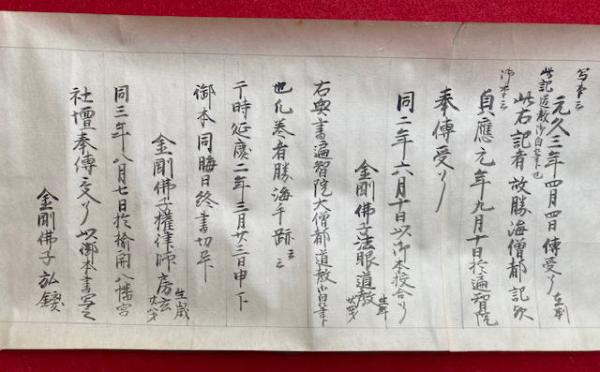 写本云
元久三年四月四日傳受了 在判
此記道教御自筆也
此右記者故勝海僧都記次
御本云
貞應元年九月十日於遍智院
奉傳受了
同二年六月十日以御本校合了
金剛佛子法眼道教 生年廿四
右奥書遍智院大僧都道教御自筆
也凡巻者勝海手跡云云
于時延慶二年三月廿三日申下
御本同晦日終書切畢
金剛佛子權律師房玄 生歳廿六
同三年八月七日於 八幡宮
社壇奉傳受了以御本書写之
金剛佛子弘鑁